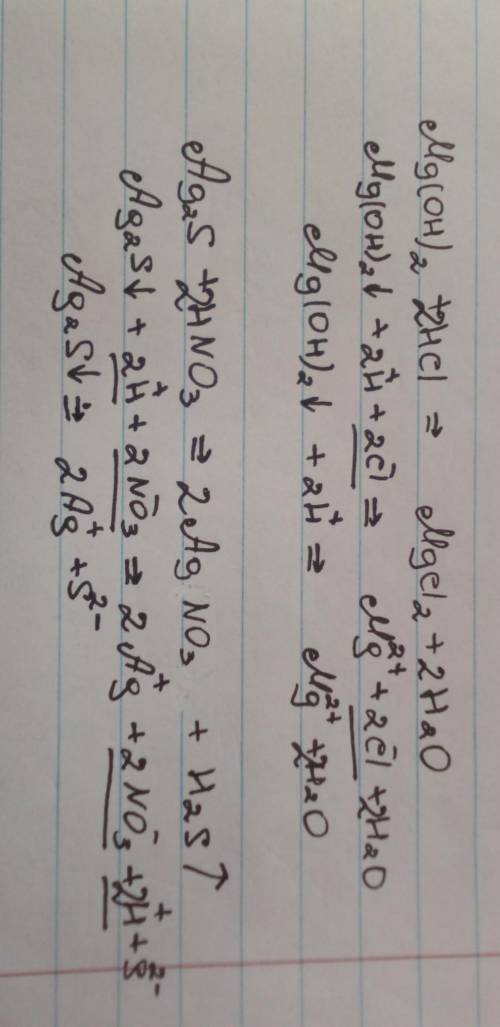 Mg(OH)₂ + 2HCl ⇒ MgCl₂ + 2H₂O
Mg(OH)₂↓ + 2H⁺ + 2Cl⁻ ⇒ Mg²⁺ + 2Cl⁻ + 2H₂O
Mg(OH)₂↓ + 2H⁺ ⇒ Mg²⁺ + 2H₂O
Ag₂S + 2HNO₃ ⇒ 2AgNO₃ + H₂S↑
Ag₂S↓ + 2H⁺ + 2NO₃⁻ ⇒ 2Ag⁺ + 2NO₃⁻ + 2H⁺ + S²⁻
Ag₂S↓ ⇒ 2Ag⁺ + S²⁻